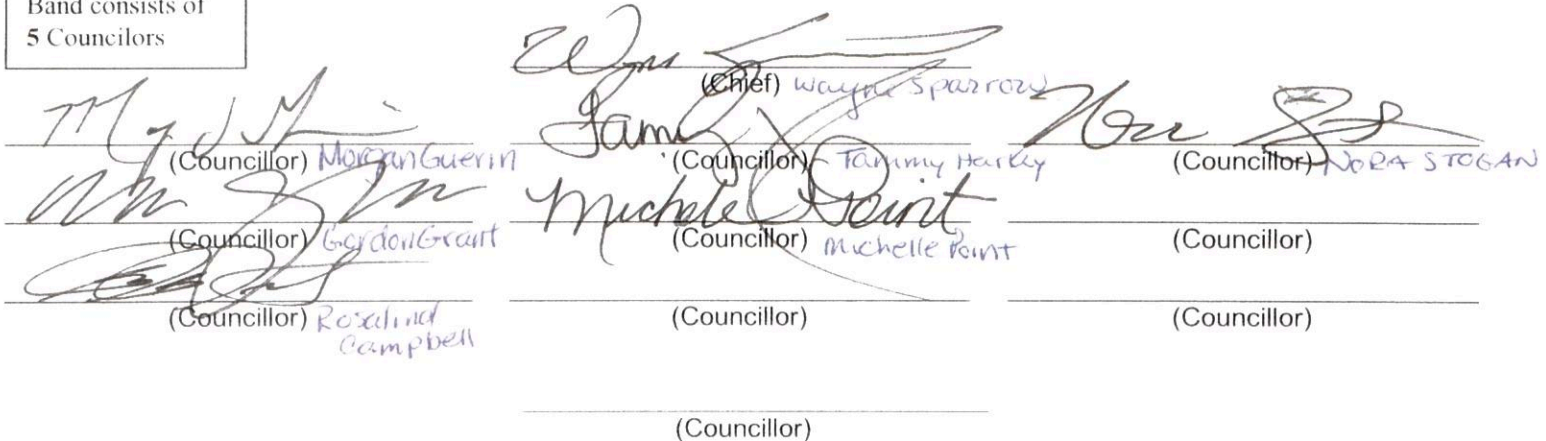 Band consists of
5 Councilors
(Chief) Wayne Sparrow
(Councillor) Morgan Guerin
(Councillor) Tammy Harkey
(Councillor) NORA STOGAN
(Councillor) Gordon Grant
Michele Point
(Councillor) Michelle Point
(Councillor)
(Councillor) Rosalind
Campbell
(Councillor)
(Councillor)
(Councillor)